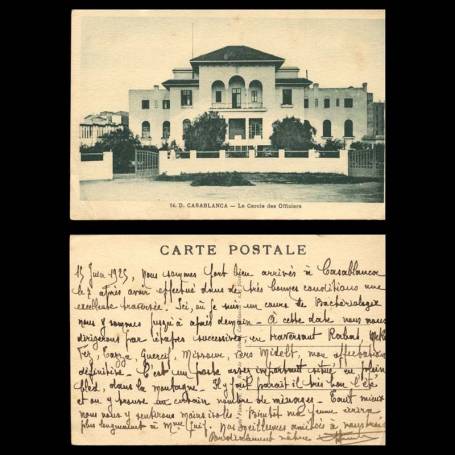 14. D. CASABLANCA — Le Cercle des Officiers
CARTE POSTALE
15 Juin 1925, Nous sommes fort bien arrivés à Casablanca
le 7 après avoir effectué dans de très bonnes conditions une
excellente traversée. Ici, où je suis un cours de Bactériologie
nous y sommes jusqu'à après demain - À cette date nous nous
dirigerons par étapes successives, en traversant Rabat, Mek
Fez, Taza, Guercif, Missour, vers Midelt, mon affectation
définitive - C'est un poste assez important situé en plein
bled, dans la montagne - Il y fait paraît il très bon l'été
et on y trouve un certain nombre de ménages - Tant mieux
nous nous y sentirons moins isolés - Bientôt ma femme écrira
plus longuement à Mme Nos meilleures amitiés à
Cordialement vôtre